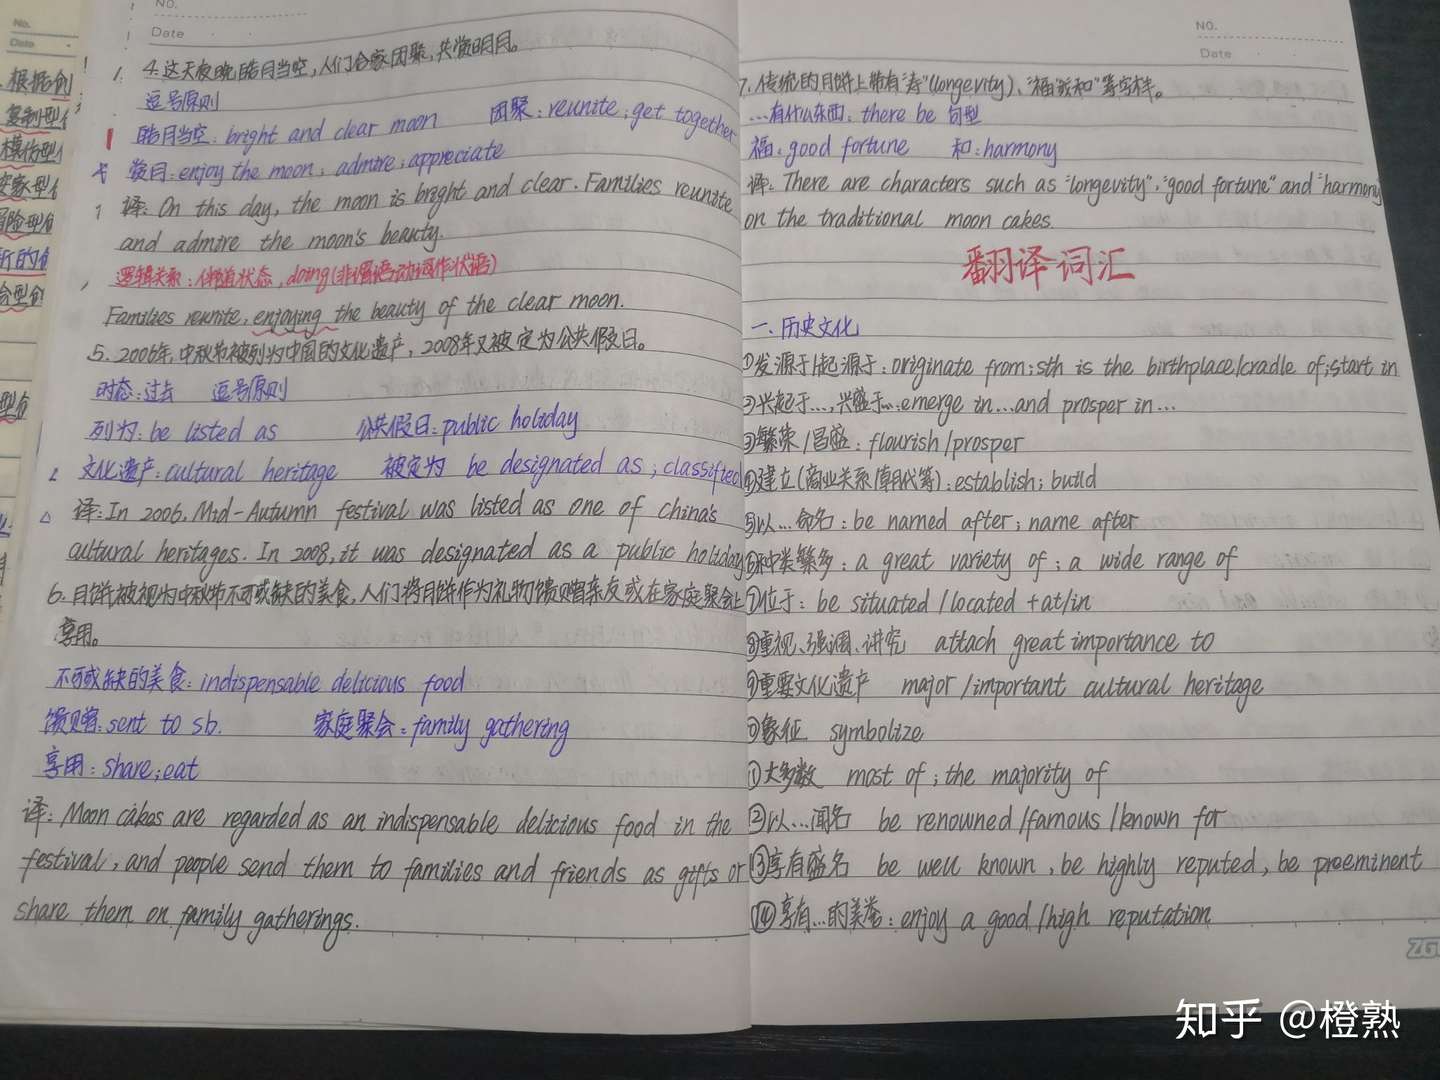 No.
Date
根据句
NO.
Date
4.这天夜晚皓月当空,人们合家团聚,共赏明月。
逗号原则
皓月当空: bright and clear moon 团聚: reunite; get together
赏月: enjoy the moon, admire; appreciate
译: On this day, the moon is bright and clear. Families reunite
and admire the moon's beauty.
逻辑关系: 伴随状态, doing(非谓语动词作状语)
Families reunite, enjoying the beauty of the clear moon.
5. 2006年,中秋节被列为中国的文化遗产, 2008年又被定为公共假日。
时态:过去 逗号原则
列为: be listed as 公共假日: public holiday
文化遗产: cultural heritage 被定为 be designated as; classified
译: In 2006, Mid-Autumn festival was listed as one of china's
cultural heritages. In 2008, it was designated as a public holiday
6.月饼被视为中秋节不可或缺的美食,人们将月饼作为礼物馈赠亲友或在家庭聚会上
享用。
不可或缺的美食: indispensable delicious food
馈赠: sent to sb. 家庭聚会: family gathering
享用: share; eat
译: Moon cakes are regarded as an indispensable delicious food in the
festival, and people send them to families and friends as gifts or
share them on family gatherings.
NO.
Date
7.传统的月饼上带有"寿"(longevity)、"福"或"和"等字样。
...有什么东西: there be 句型
福: good fortune 和: harmony
译: There are characters such as "longevity", "good fortune" and "harmony
on the traditional moon cakes.
翻译词汇
一、历史文化
①发源于/起源于: originate from; sth is the birthplace/cradle of; start in
②兴起于..., 兴盛于... emerge in...and prosper in...
③繁荣/昌盛: flourish/prosper
④建立(商业关系/朝代等): establish; build
⑤以...命名: be named after; name after
⑥种类繁多: a great variety of; a wide range of
⑦位于: be situated/located +at/in
⑧重视、强调、讲究 attach great importance to
⑨重要文化遗产 major/important cultural heritage
⑩象征 symbolize
⑪大多数 most of; the majority of
⑫以...闻名 be renowned/famous/known for
⑬享有盛名 be well known, be highly reputed, be preeminent
⑭享有...的美誉: enjoy a good/high reputation
知乎 @橙熟